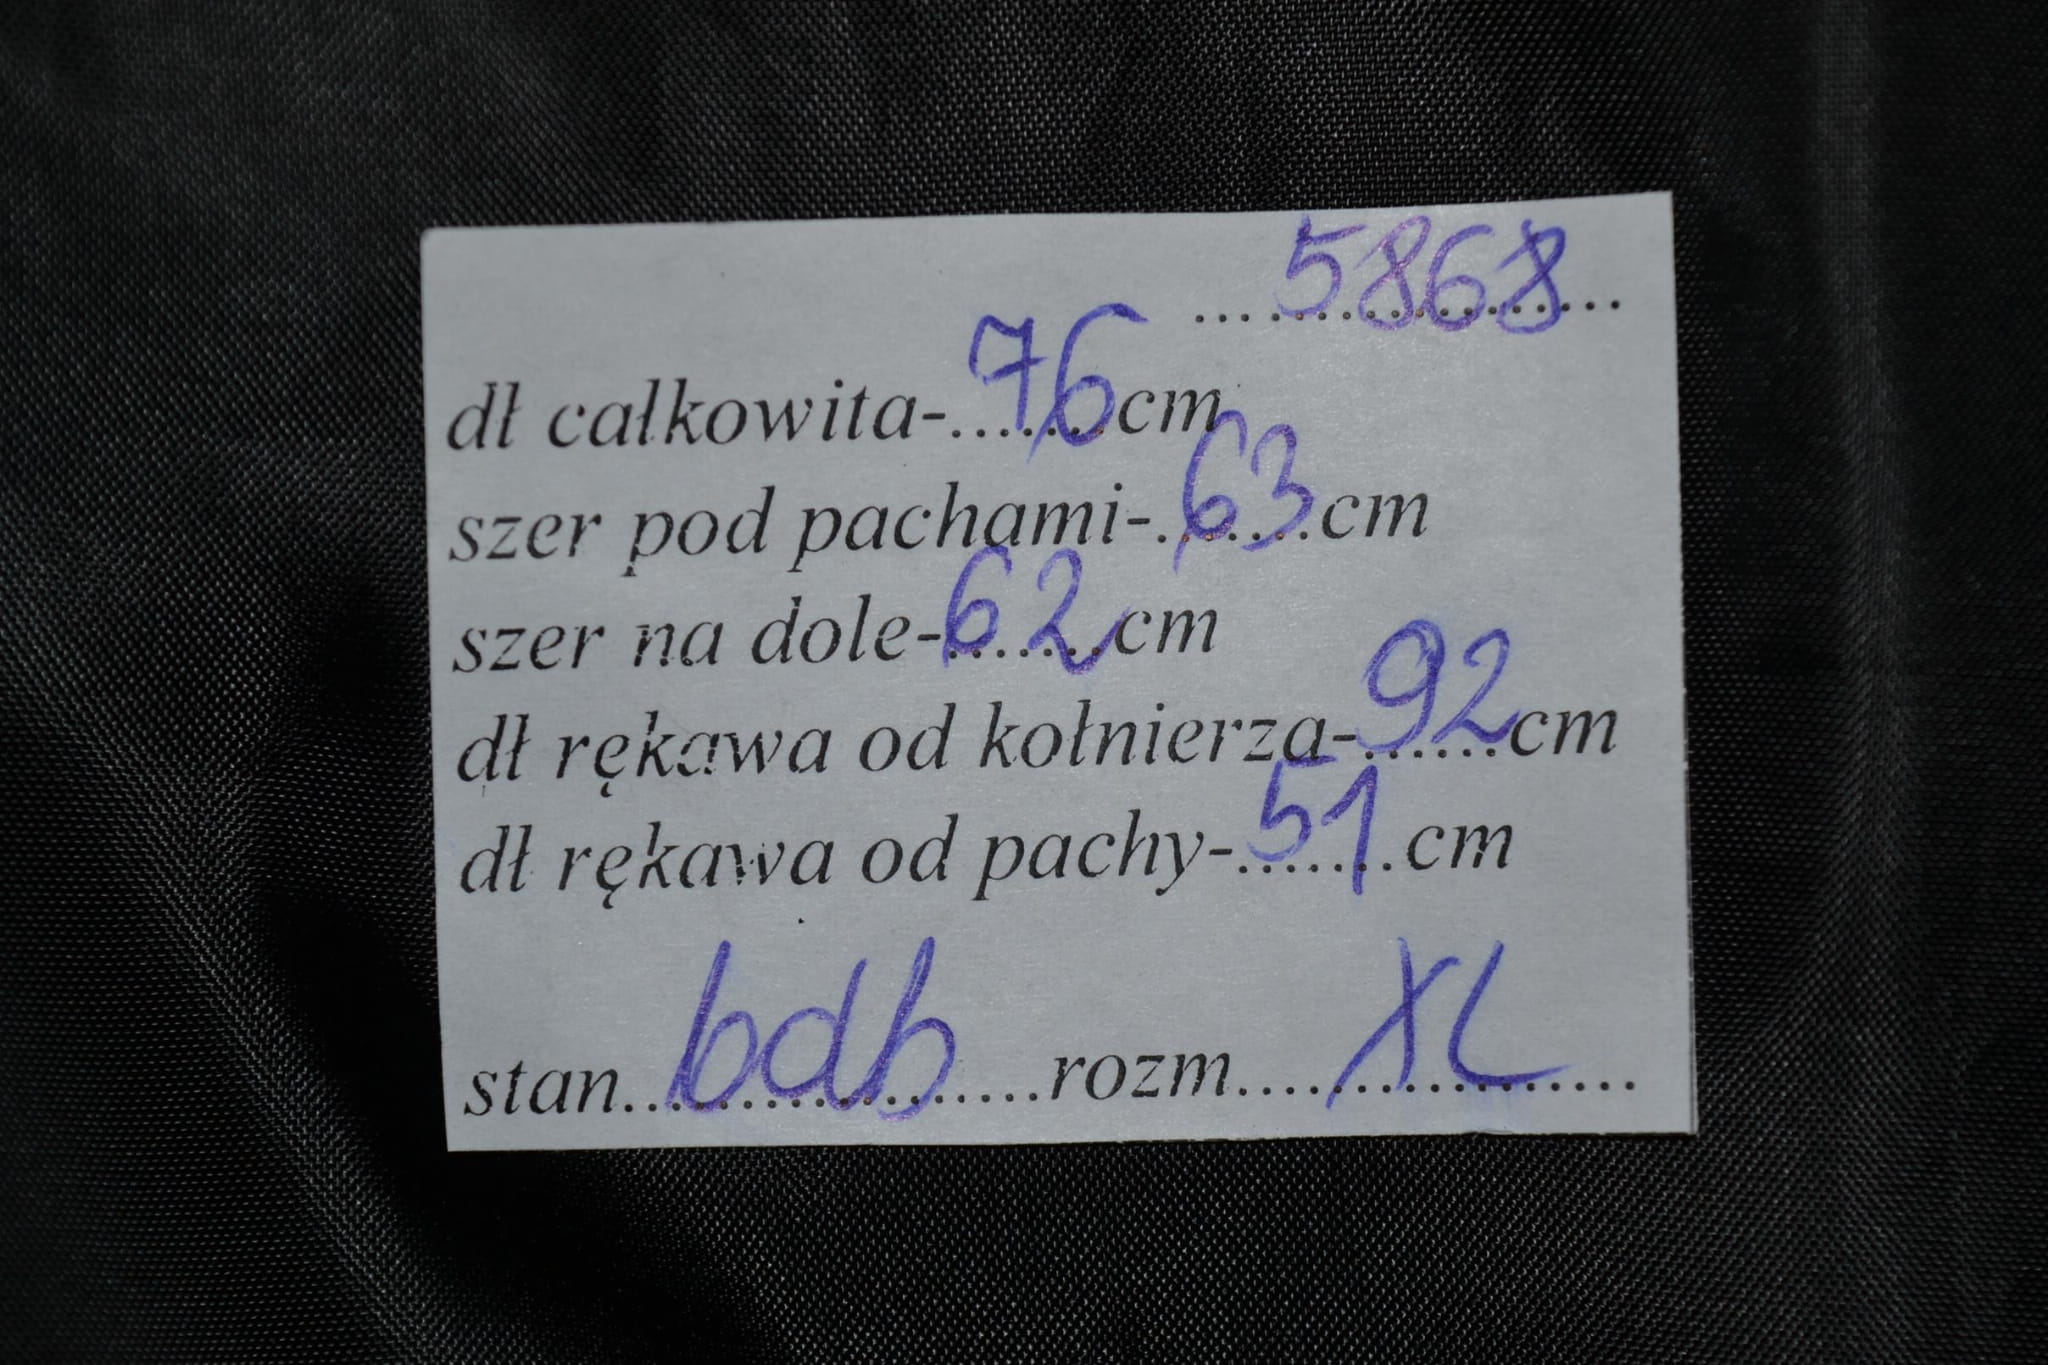 ...5868...
dł całkowita-...76...cm
szer pod pachami-...63...cm
szer na dole-...62...cm
dł rękawa od kołnierza-...92...cm
dł rękawa od pachy-...51...cm
stan...bdb...rozm...XL...